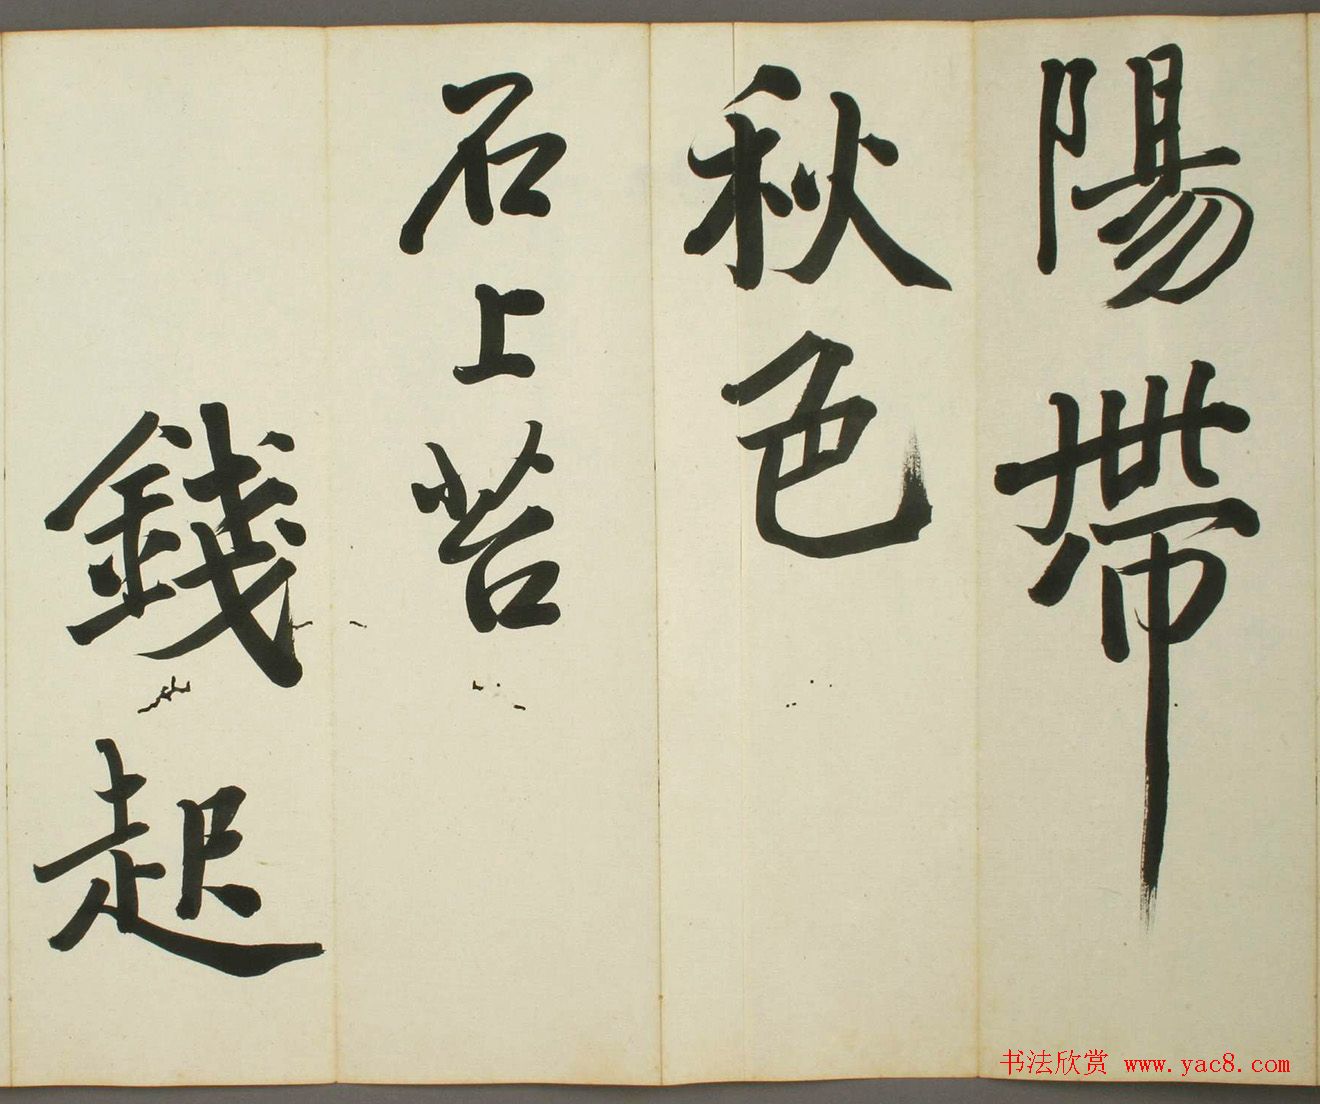 陽帶
秋色
石上苔
錢起
书法欣赏 www.yac8.com